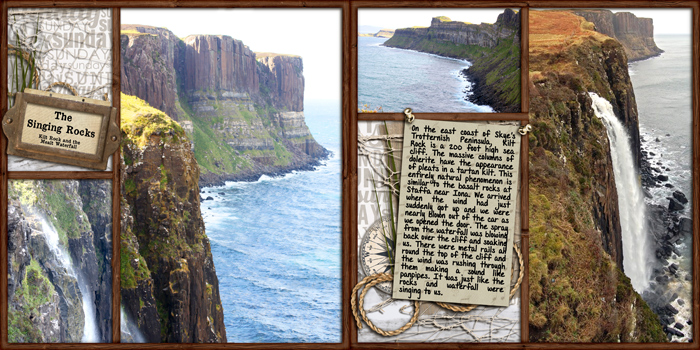 Sunda
SUN
The
Singing Rocks
Kilt Rock and the
Mealt Waterfall
On the east coast of Skye's
Trotternish Peninsula, Kilt
Rock is a 200 foot high sea
cliff. The massive columns of
dolerite have the appearance
of pleats in a tartan kilt. This
entirely natural phenomenon is
similar to the basalt rocks at
Staffa near Iona. We arrived
when the wind had just
suddenly got up and we were
nearly blown out of the car as
we opened the door. The spray
from the waterfall was blowing
back over the cliff and soaking
us. There were metal rails all
round the top of the cliff and
the wind was rushing through
them making a sound like
panpipes. It was just like the
rocks and waterfall were
singing to us.